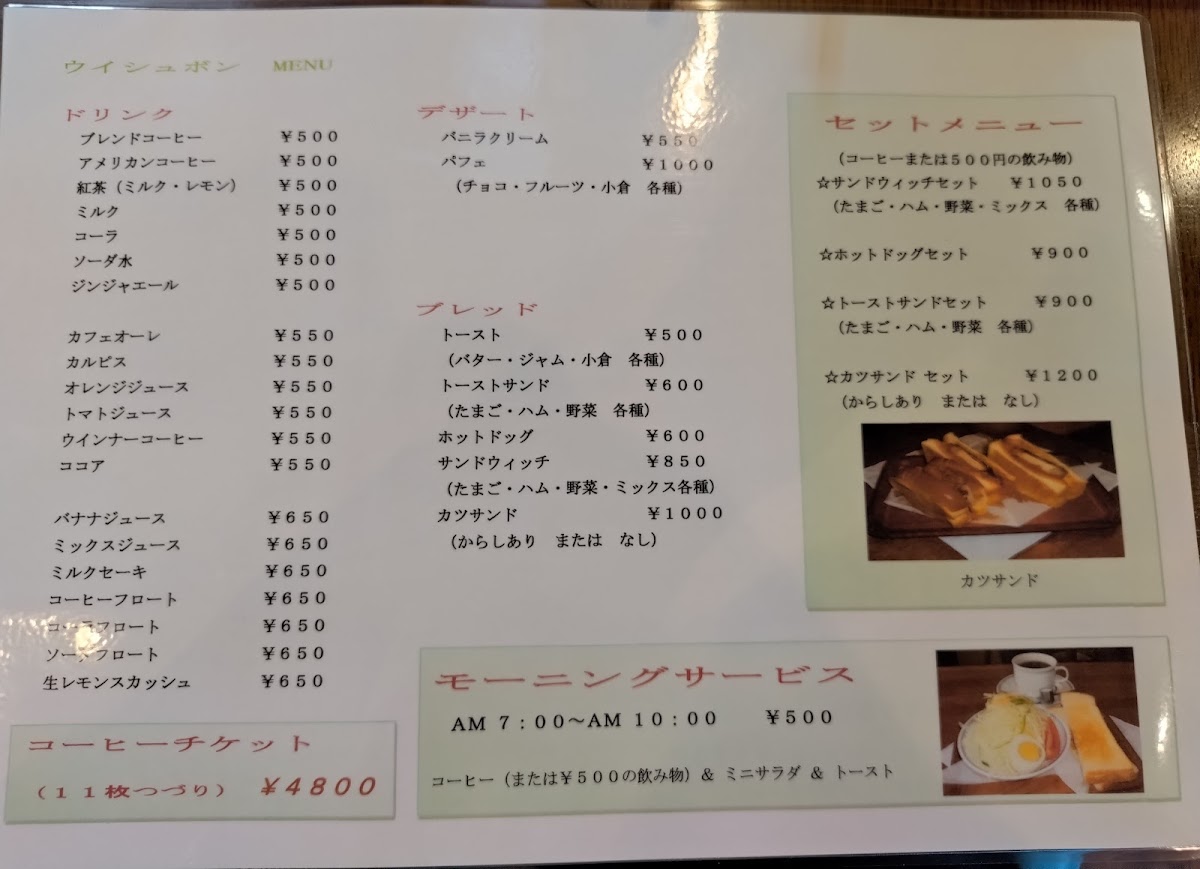 ウイシュボン MENU
ドリンク
ブレンドコーヒー ￥５００
アメリカンコーヒー ￥５００
紅茶（ミルク・レモン） ￥５００
ミルク ￥５００
コーラ ￥５００
ソーダ水 ￥５００
ジンジャエール ￥５００
カフェオーレ ￥５５０
カルピス ￥５５０
オレンジジュース ￥５５０
トマトジュース ￥５５０
ウインナーコーヒー ￥５５０
ココア ￥５５０
バナナジュース ￥６５０
ミックスジュース ￥６５０
ミルクセーキ ￥６５０
コーヒーフロート ￥６５０
コーラフロート ￥６５０
ソーダフロート ￥６５０
生レモンスカッシュ ￥６５０
コーヒーチケット
（１１枚つづり） ￥４８００
デザート
バニラクリーム ￥５５０
パフェ ￥１０００
（チョコ・フルーツ・小倉 各種）
ブレッド
トースト ￥５００
（バター・ジャム・小倉 各種）
トーストサンド ￥６００
（たまご・ハム・野菜 各種）
ホットドッグ ￥６００
サンドウィッチ ￥８５０
（たまご・ハム・野菜・ミックス各種）
カツサンド ￥１０００
（からしあり または なし）
セットメニュー
（コーヒーまたは５００円の飲み物）
☆サンドウィッチセット ￥１０５０
（たまご・ハム・野菜・ミックス 各種）
☆ホットドッグセット ￥９００
☆トーストサンドセット ￥９００
（たまご・ハム・野菜 各種）
☆カツサンド セット ￥１２００
（からしあり または なし）
カツサンド
モーニングサービス
AM ７：００～AM １０：００ ￥５００
コーヒー（または￥５００の飲み物）＆ ミニサラダ ＆ トースト